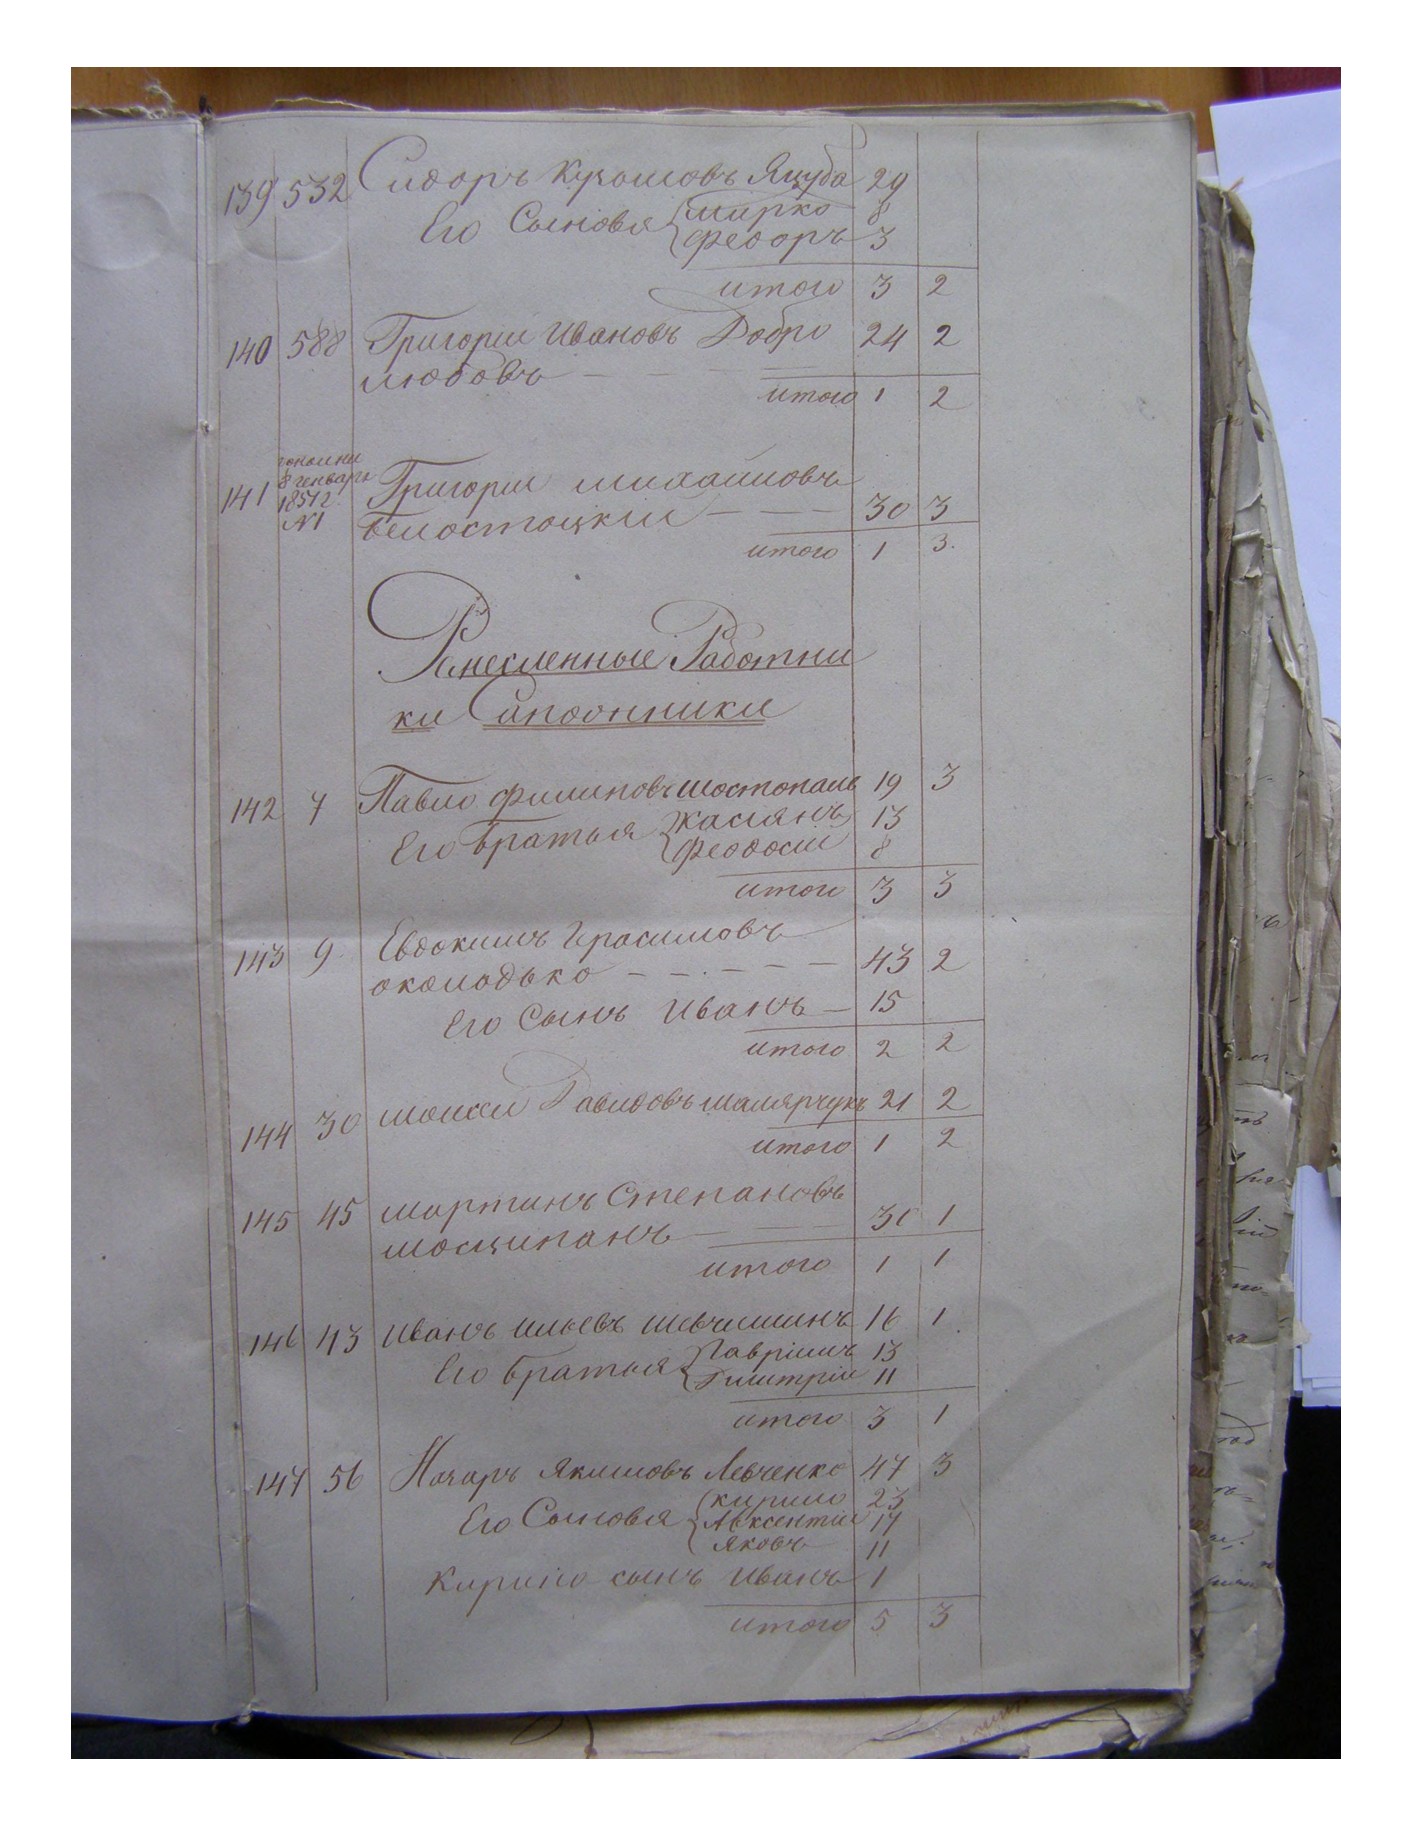 139 532 Сидоръ Кузьмовъ Яцуба 29
Его Сыновья Мирко 8
Федоръ 3
итого 3 2
140 588 Григорiй Ивановъ Добро 24 2
любовъ
итого 1 2
8 генваря
141 1851 г. Григорiй Михайловъ
№ 1 Белостоцкiй 30 3
итого 1 3.
Ремесленные Работни
ки
142 7 Павло Филиповъ Шостопаль 19 3
Его Братья Касiянъ 13
Феодосiй 8
итого 3 3
143 9 Евдокимъ Герасимовъ
околодько 43 2
Его Сынъ Иванъ 15
итого 2 2
144 30 Моисей Давидовъ 21 2
итого 1 2
145 45 Мартинъ Степановъ
30 1
итого 1 1
146 43 Иванъ Ильевъ Шевчишинъ 16 1
Его Братья Гаврiилъ 13
Димитрiй 11
итого 3 1
147 56 Назаръ Якимовъ Левченко 47 3
Его Сыновья Кирило 23
Авксентiй 17
Яковъ 11
Кирила сынъ Иванъ 1
итого 5 3